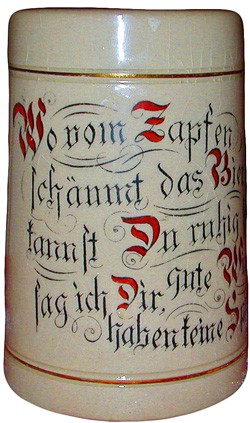 Wo vom Zapfen
schäumt das Bie
kannst Du ruhig
sag ich Dir, gute
haben keine